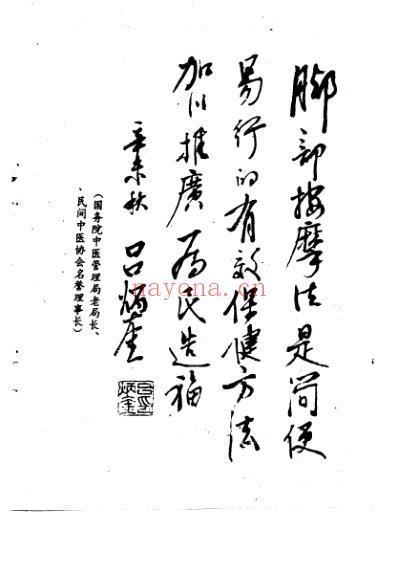 脚部按摩法是简便
易行的有效保健方法
加以推廣为民造福
辛未秋 吕炳奎
（国务院中医管理局老局长、
民间中医协会名誉理事长）
nayona.cn